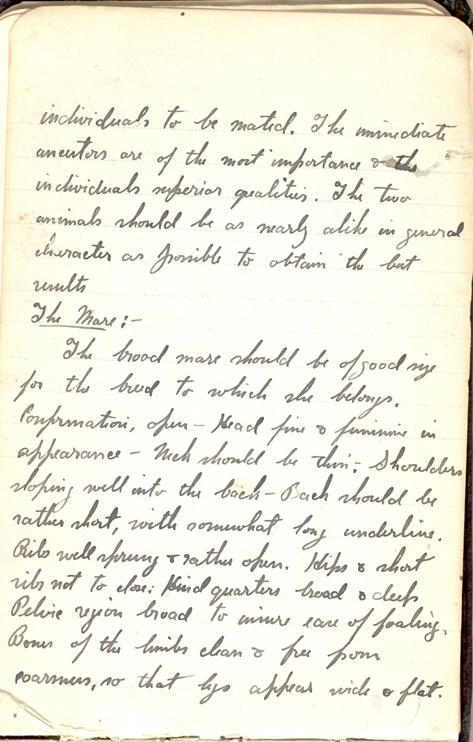 individuals to be mated. The immediate
ancestors are of the most importance & the
individuals superior qualities. The two
animals should be as nearly alike in general
character as possible to obtain the best
results
The Mare:-
The brood mare should be of good size
for the breed to which she belongs.
Confirmation, open - Head fine & feminine in
appearance - Neck should be thin; Shoulders
sloping well into the back - Back should be
rather short, with somewhat long underline.
Ribs well sprung & rather open. Hips & short
ribs not to close; Hind quarters broad & deep
Pelvic region broad to insure ease of foaling.
Bones of the limbs clean & free from
coarness, so that legs appear wide & flat.